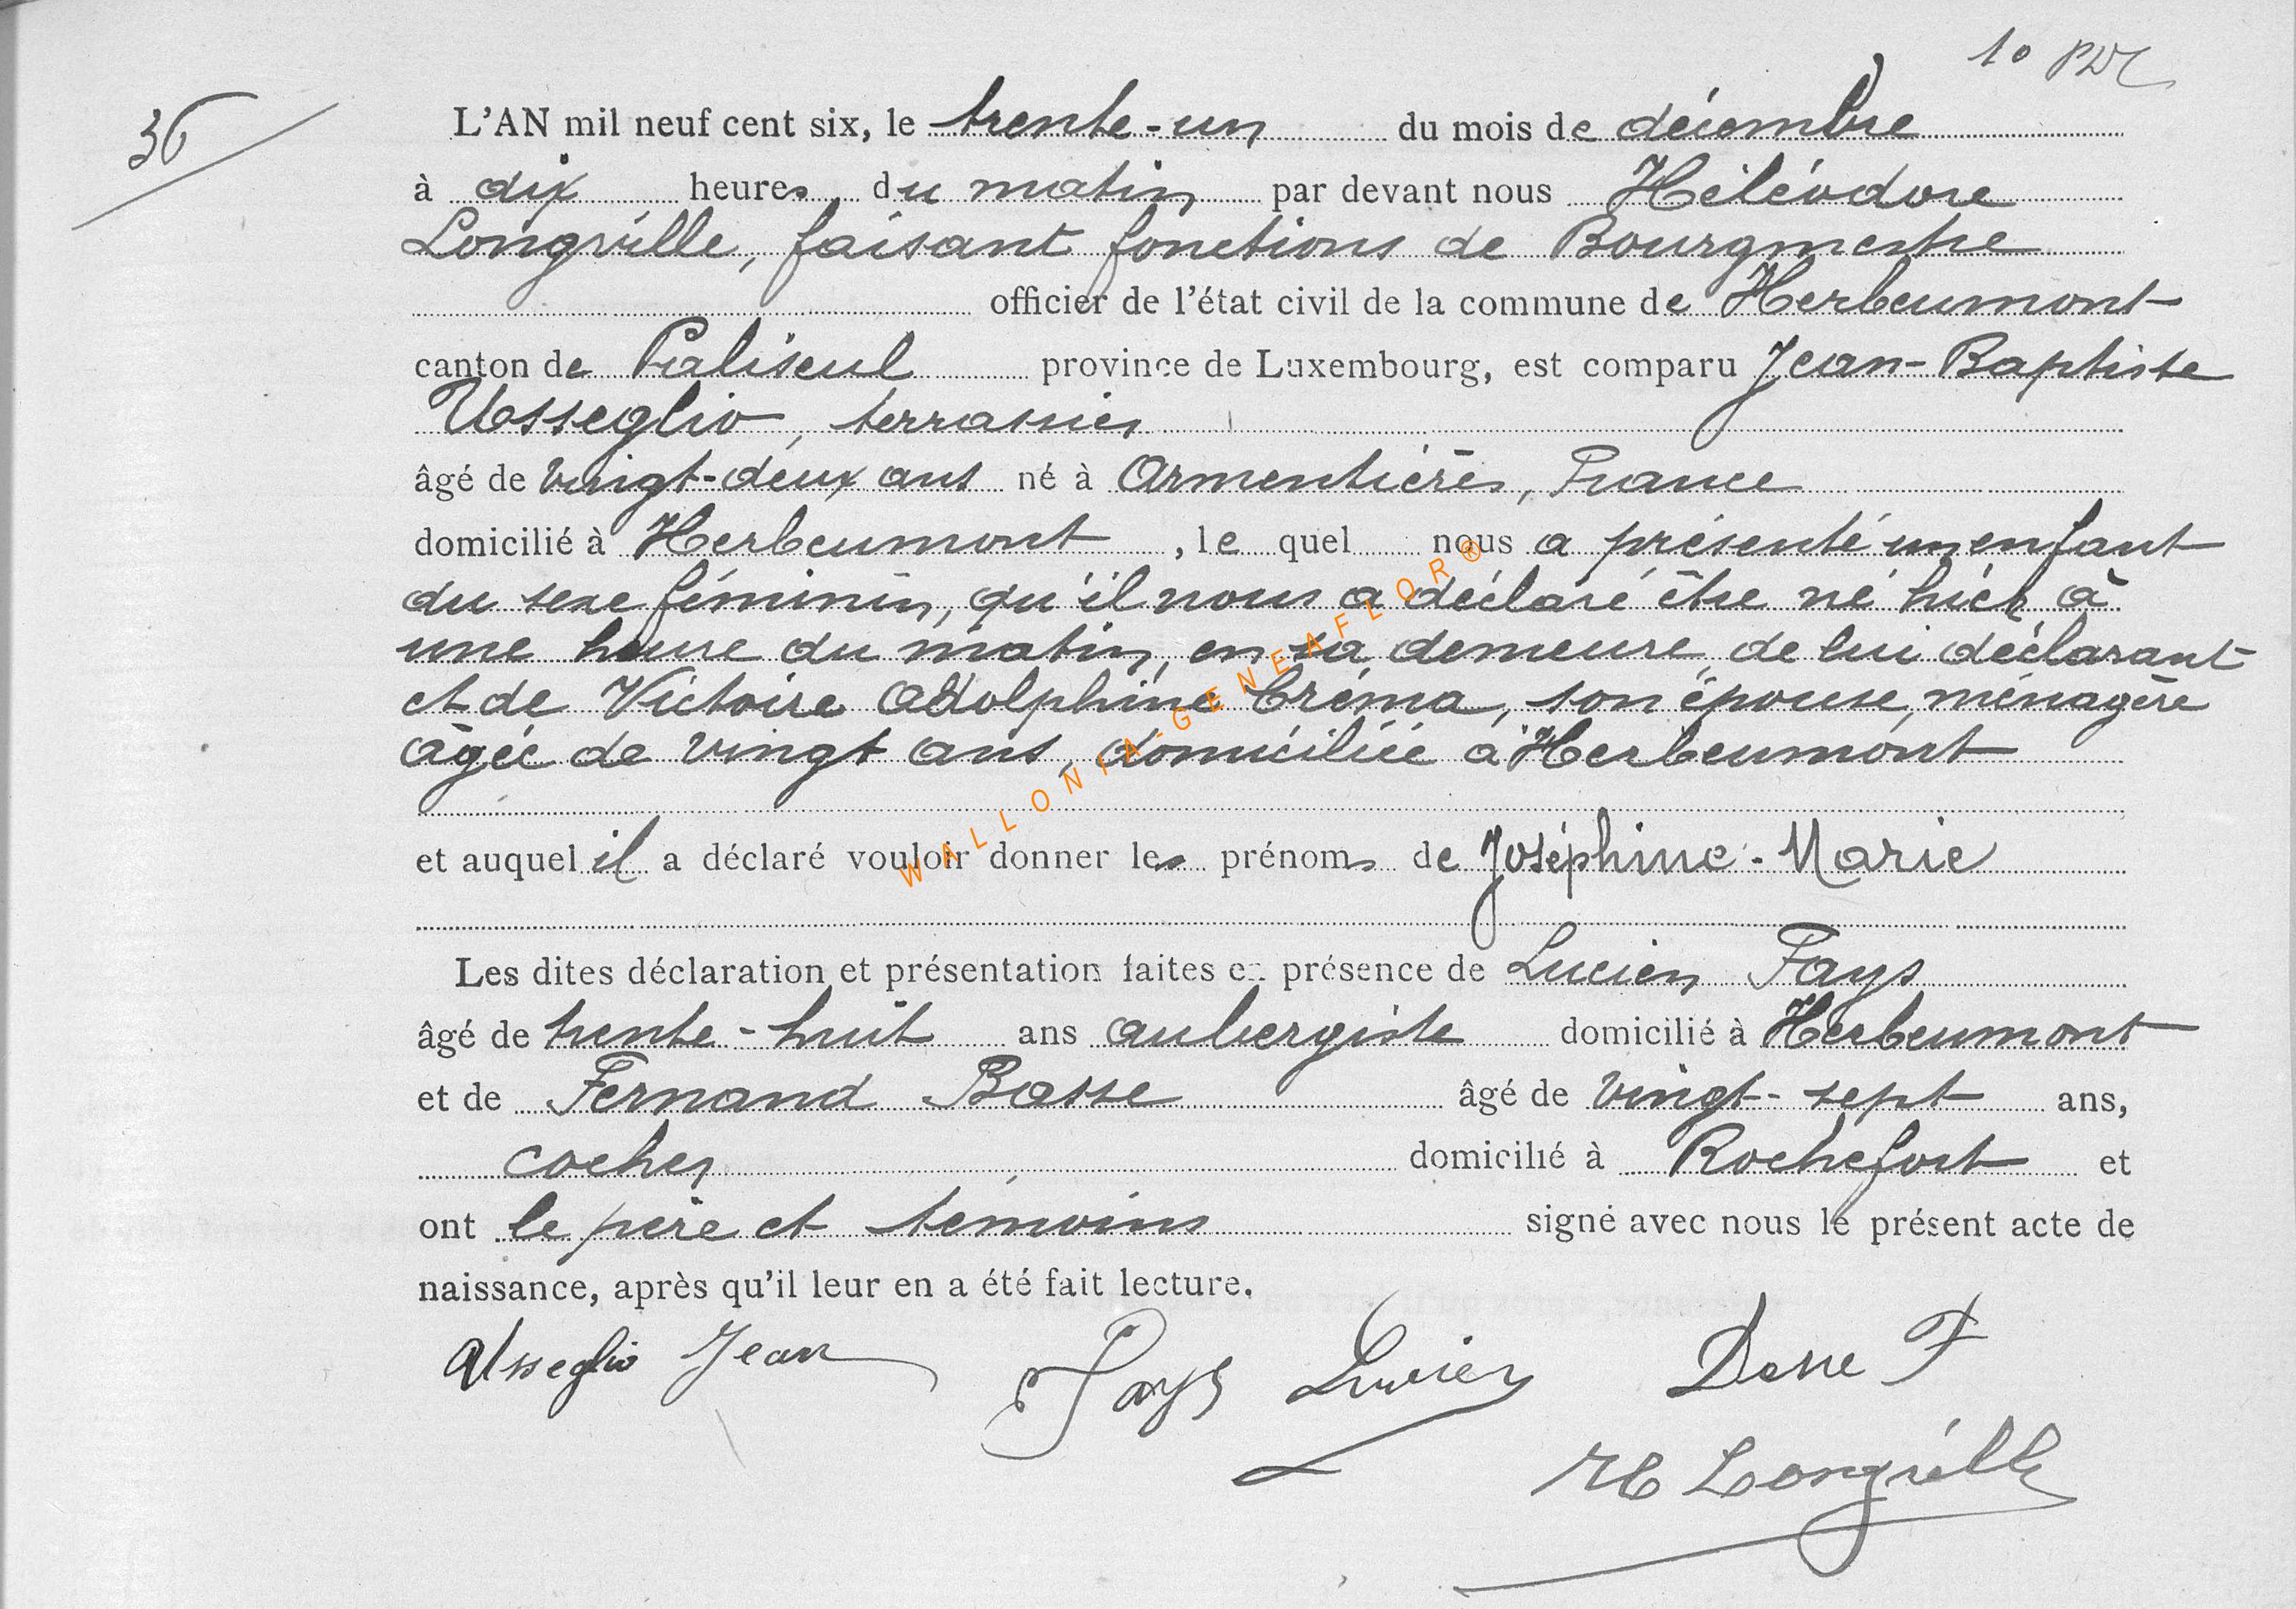 10
36
L'AN mil neuf cent six, le trente-un du mois de décembre
à dix heures du matin par devant nous Héléodore
Longville, faisant fonctions de Bourgmestre
officier de l'état civil de la commune de Herbeumont
canton de Paliseul province de Luxembourg, est comparu Jean-Baptiste
Usseglio, terrassier
âgé de vingt-deux ans né à Armentières, France
domicilié à Herbeumont, le quel nous a présenté un enfant
du sexe féminin, qu'il nous a déclaré être né hier à
une heure du matin, en sa demeure, de lui déclarant
et de Victoire Adolphine Créma, son épouse, ménagère
âgée de vingt ans, domiciliée à Herbeumont
et auquel il a déclaré vouloir donner les prénoms de Joséphine-Marie
Les dites déclaration et présentation faites en présence de Lucien Fays
âgé de trente-huit ans aubergiste domicilié à Herbeumont
et de Fernand Basse âgé de vingt-sept ans,
cocher domicilié à Rochefort et
ont le père et témoins signé avec nous le présent acte de
naissance, après qu'il leur en a été fait lecture.
Usseglio Jean Fays Lucien F
H Longville
WALLONIA-GENEAFLOR®